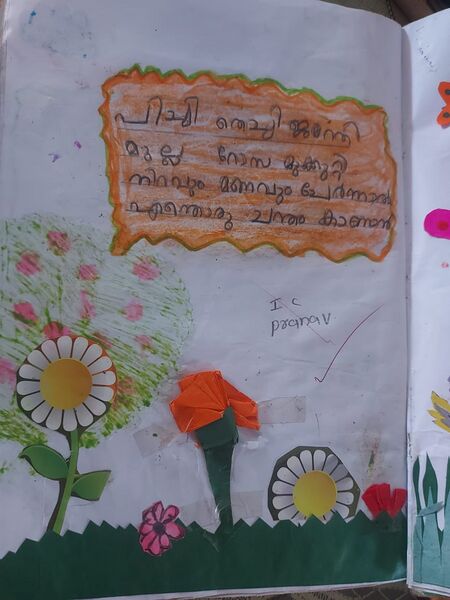 പിച്ചി തെച്ചി ജമന്തി
മുല്ല റോസ മുക്കുറ്റി
നിറവും മണവും ചേർന്നാൽ
എന്തൊരു ചന്തം കാണാൻ
I C
pranav